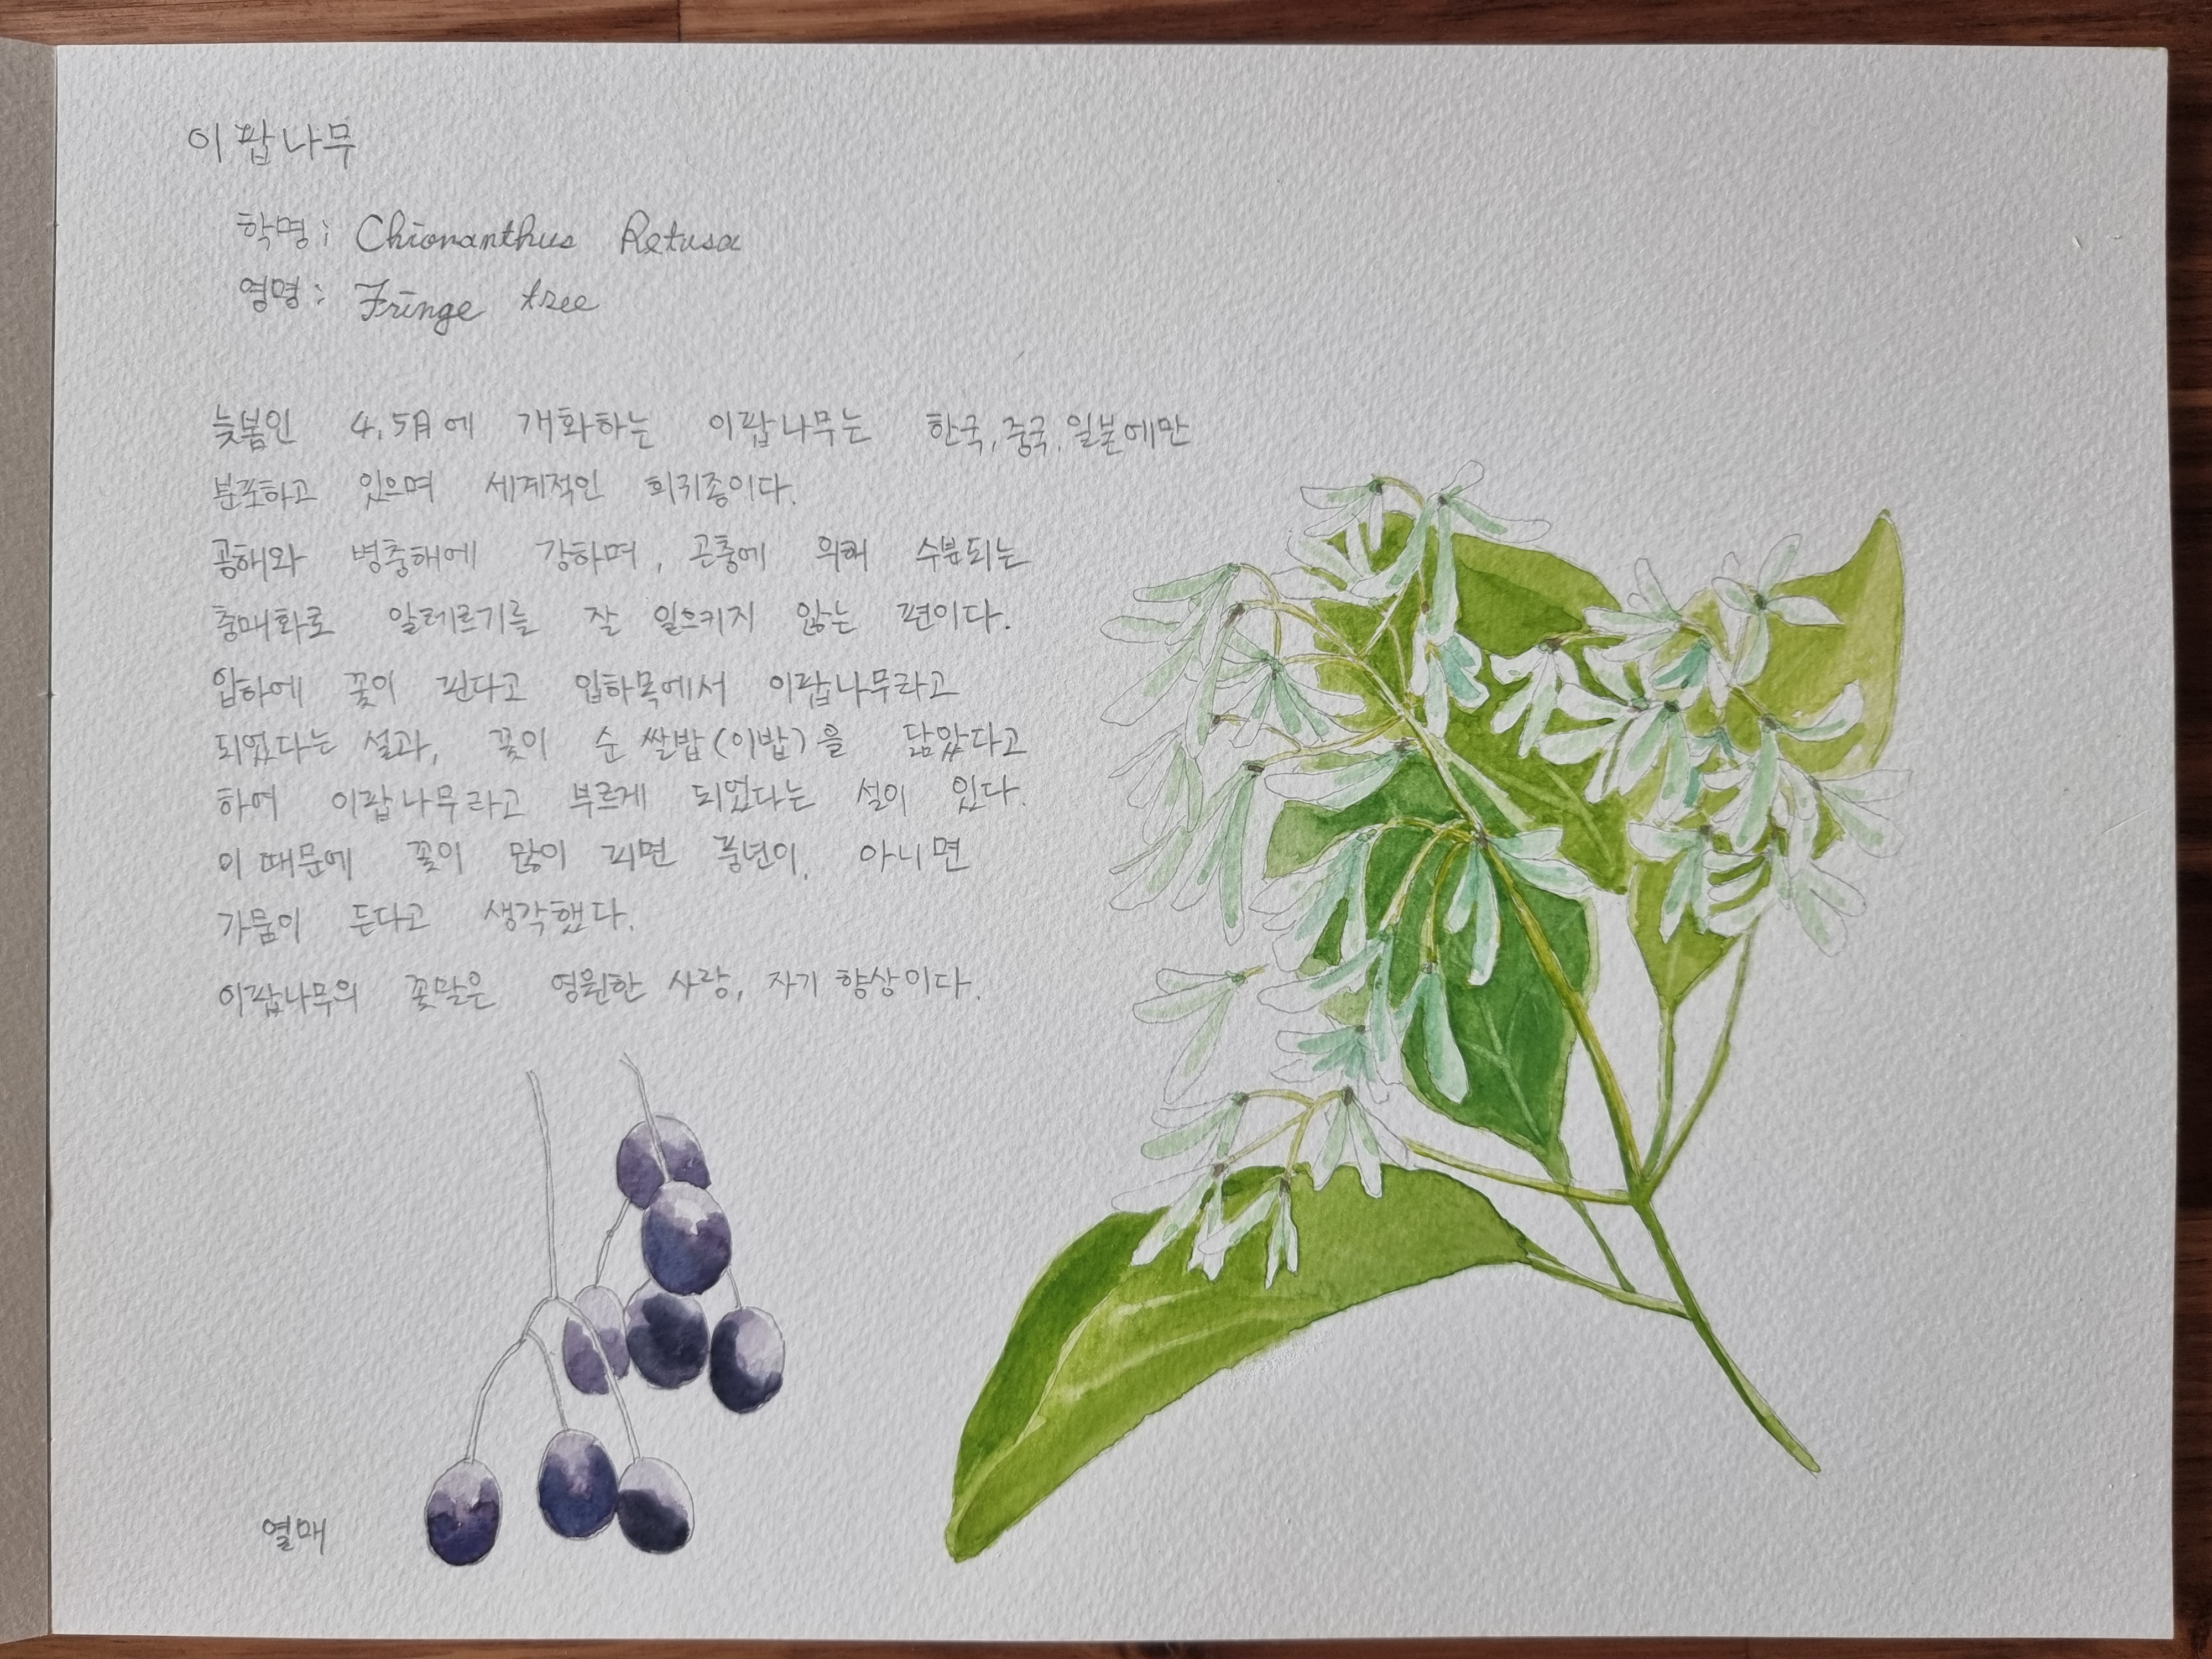 이팝나무
학명: Chionanthus Retusa
영명: Fringe tree
늦봄인 4,5月에 개화하는 이팝나무는 한국,중국,일본에만
분포하고 있으며 세계적인 희귀종이다.
공해와 병충해에 강하며, 곤충에 위해 수분되는
충매화로 알레르기를 잘 일으키지 않는 편이다.
입하에 꽃이 핀다고 입하목에서 이팝나무라고
되었다는 설과, 꽃이 순 쌀밥(이밥)을 닮았다고
하여 이팝나무라고 부르게 되었다는 설이 있다.
이 때문에 꽃이 많이 피면 풍년이, 아니면
가뭄이 든다고 생각했다.
이팝나무의 꽃말은 영원한 사랑, 자기 향상이다.
열매